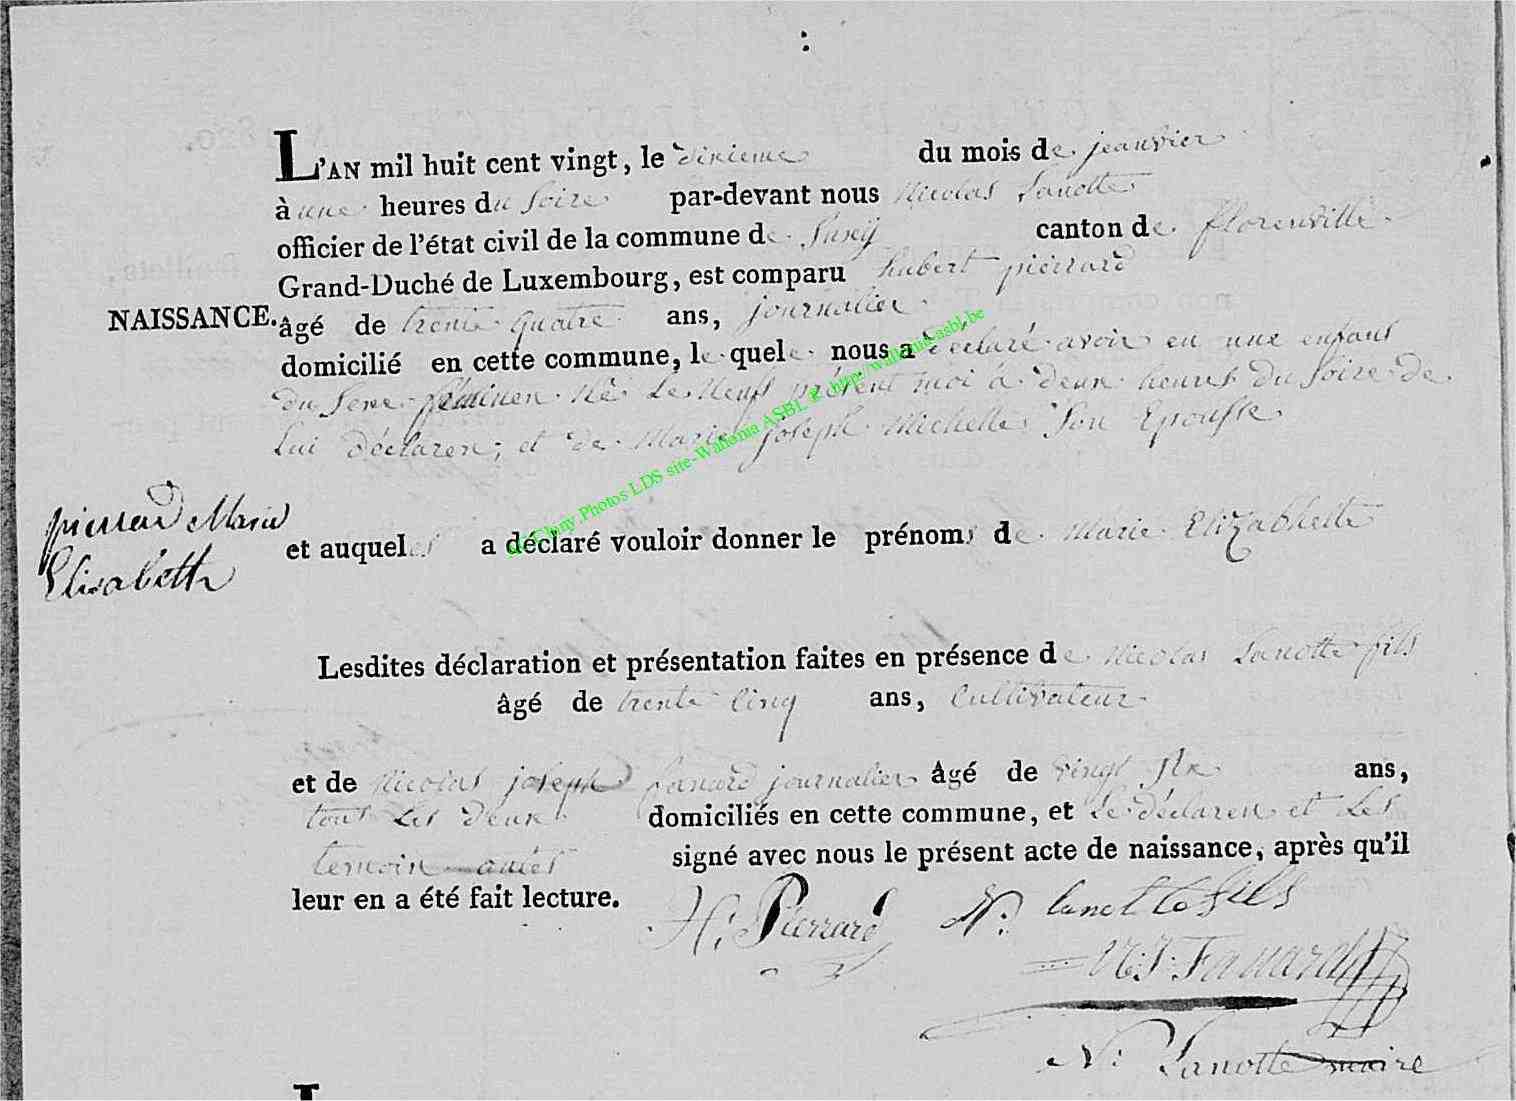 L'AN mil huit cent vingt, le dixieme du mois de jeanvier
à une heures du Soire par-devant nous Nicolas Lanotte
officier de l'état civil de la commune de Suxÿ canton de florenville
Grand-Duché de Luxembourg, est comparu hubert pierrard
NAISSANCE. âgé de trente quatre ans, journalier
domicilié en cette commune, le quel nous a déclaré avoir eu une enfant
du Sexe feminen né Le Neuf présent moi à deux heures du Soire de
Lui déclaren; et de Marie joseph Michelle Son Epousse
pierrard Maria
Elisabeth
et auquel a déclaré vouloir donner le prénoms de Marie Elizabhette
Lesdites déclaration et présentation faites en présence de Nicolas Lanotte fils
âgé de trente Cinq ans, Cultivateur
et de Nicolas joseph fanard journalier âgé de vingt Six ans,
tous Les deux domiciliés en cette commune, et Le déclaren et Les
temoin signé avec nous le présent acte de naissance, après qu'il
leur en a été fait lecture.
H. Pierrard N. lanotte fils
N. J. Fanard
N. Lanotte maire
Photos LDS site-Wallonia ASBL © http://wallonia-asbl.be